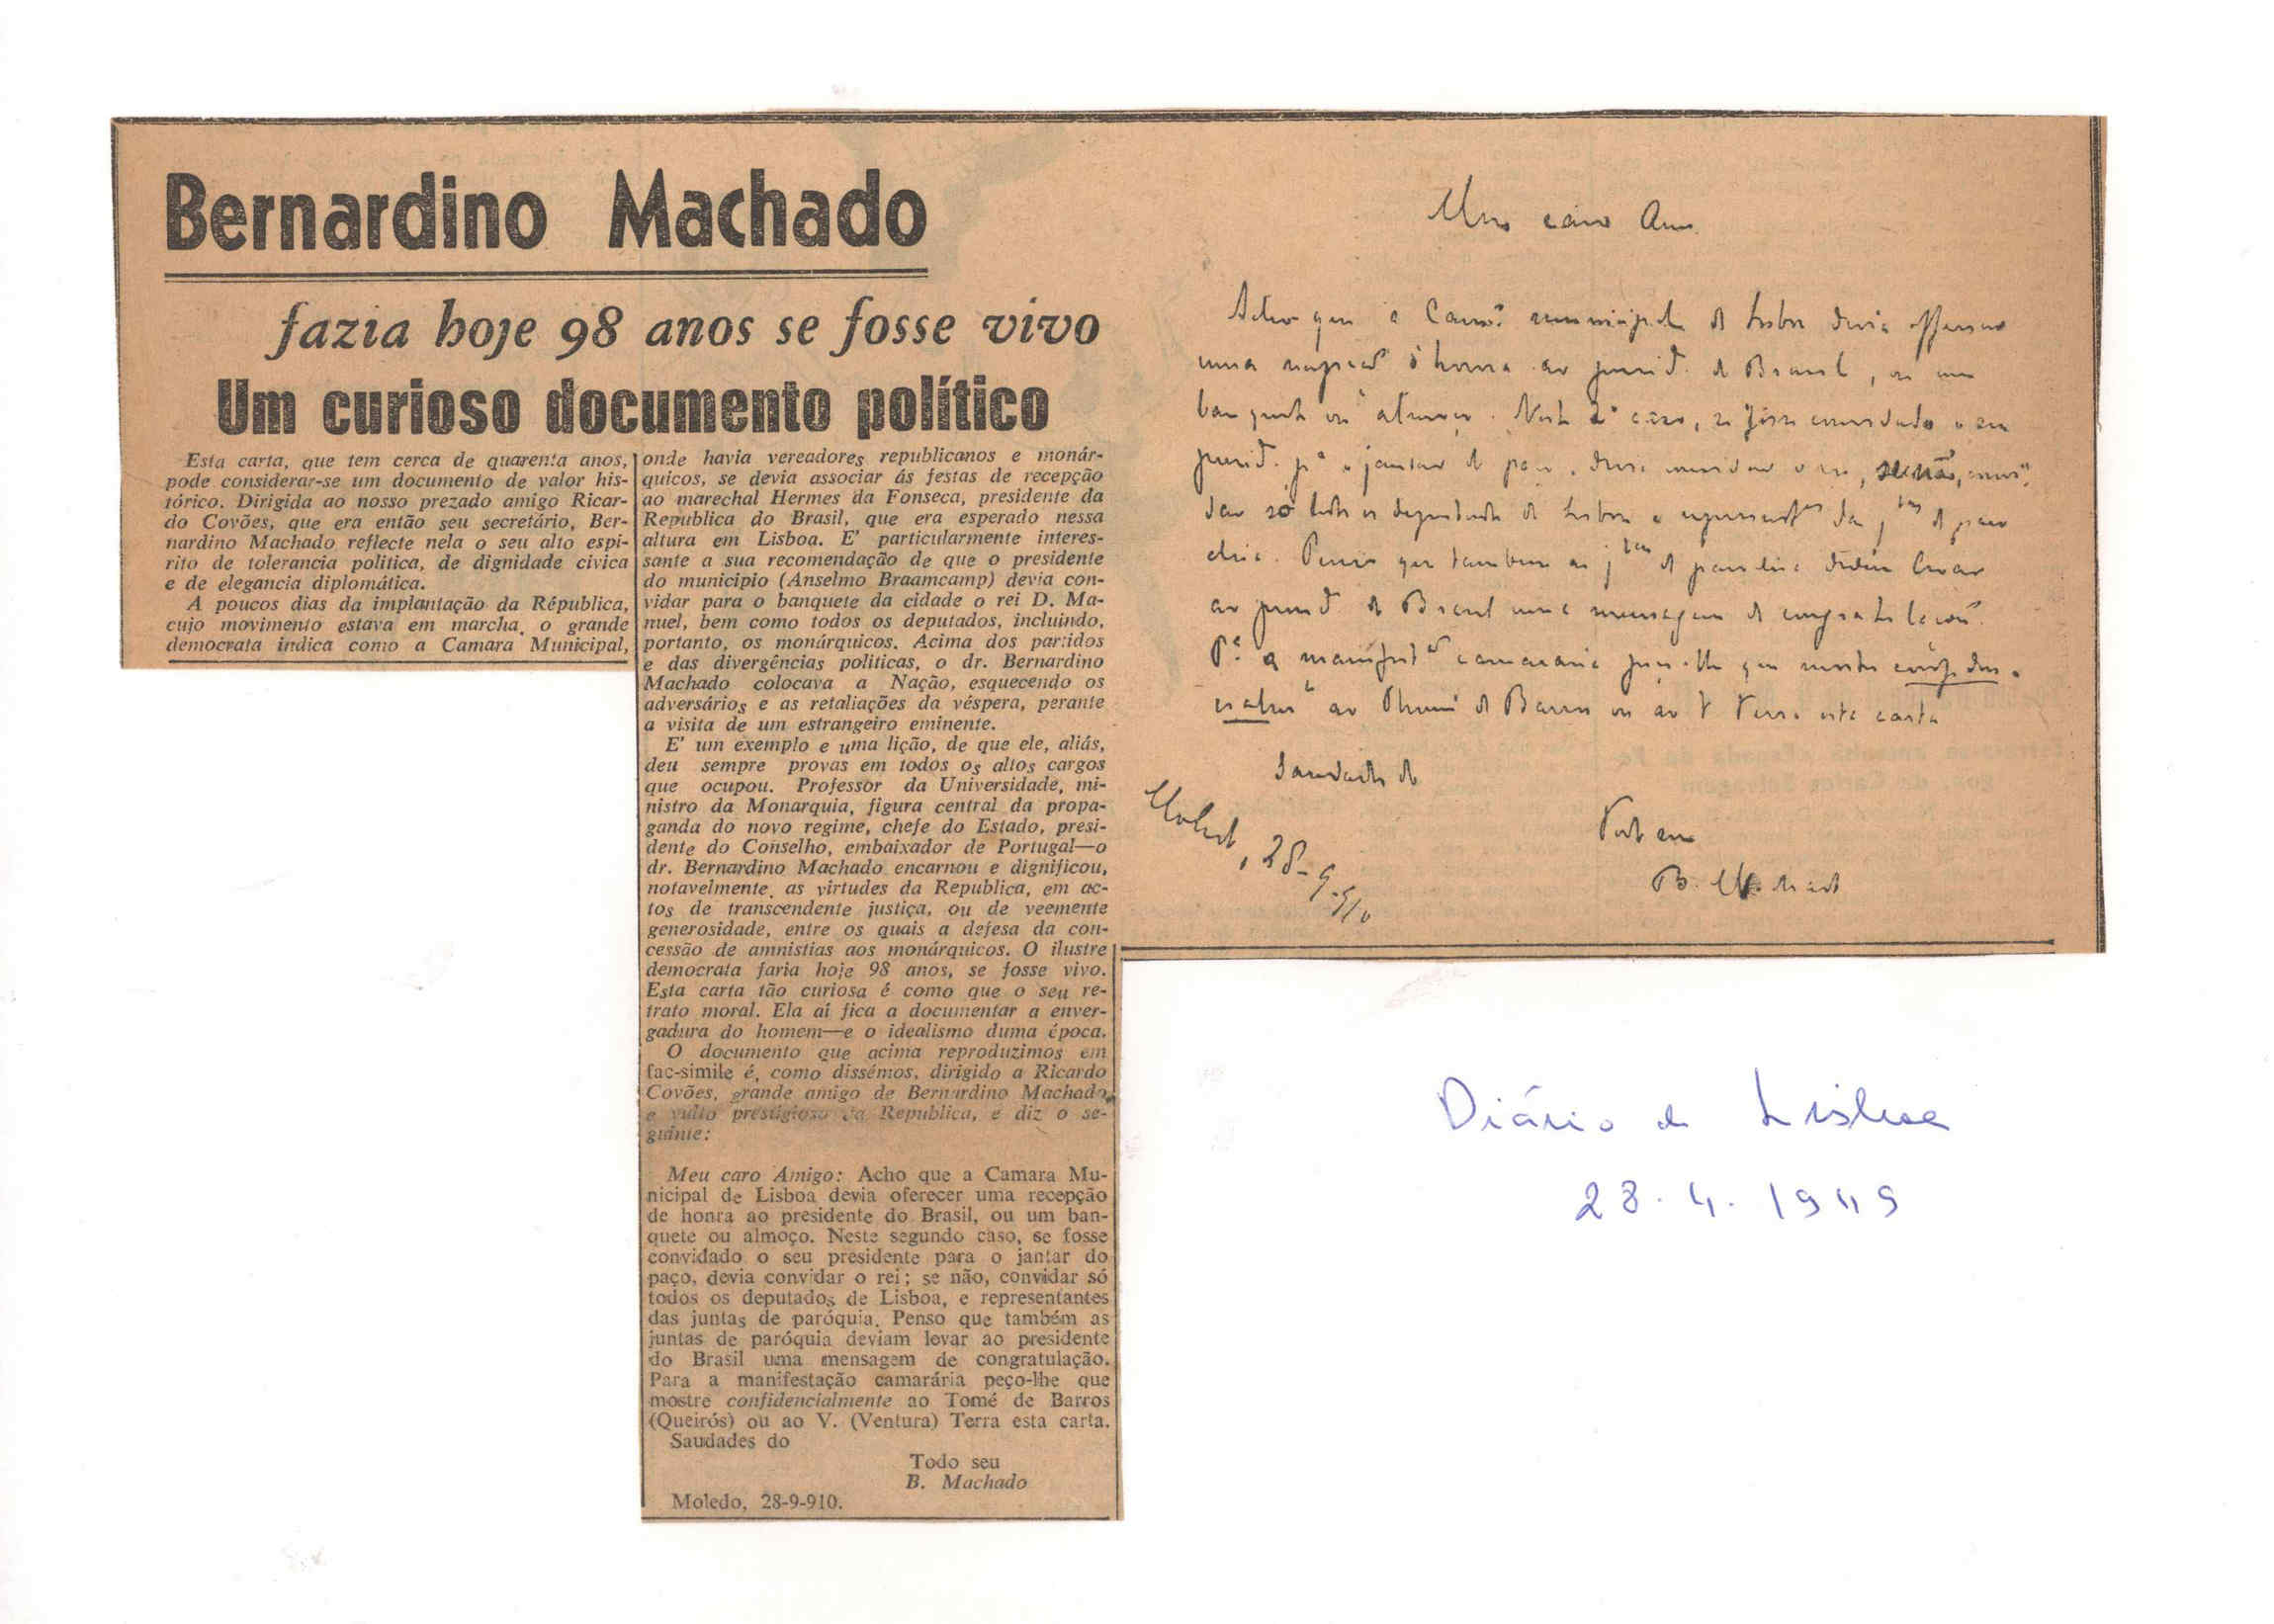 Bernardino Machado
fazia hoje 98 anos se fosse vivo
Um curioso documento político
Esta carta, que tem cerca de quarenta anos,
pode considerar-se um documento de valor his-
tórico. Dirigida ao nosso prezado amigo Ricar-
do Covões, que era então seu secretário, Ber-
nardino Machado reflecte nela o seu alto espi-
rito de tolerancia politica, de dignidade civica
e de elegancia diplomática.
A poucos dias da implantação da Républica,
cujo movimento estava em marcha, o grande
democrata indica como a Camara Municipal,
onde havia vereadores republicanos e monár-
quicos, se devia associar ás festas de recepção
ao marechal Hermes da Fonseca, presidente da
Republica do Brasil, que era esperado nessa
altura em Lisboa. E' particularmente interes-
sante a sua recomendação de que o presidente
do municipio (Anselmo Braamcamp) devia con-
vidar para o banquete da cidade o rei D. Ma-
nuel, bem como todos os deputados, incluindo,
portanto, os monárquicos. Acima dos partidos
e das divergências politicas, o dr. Bernardino
Machado colocava a Nação, esquecendo os
adversários e as retaliações da véspera, perante
a visita de um estrangeiro eminente.
E' um exemplo e uma lição, de que ele, aliás,
deu sempre provas em todos os altos cargos
que ocupou. Professor da Universidade, mi-
nistro da Monarquia, figura central da propa-
ganda do novo regime, chefe do Estado, presi-
dente do Conselho, embaixador de Portugal—o
dr. Bernardino Machado encarnou e dignificou,
notavelmente, as virtudes da Republica, em ac-
tos de transcendente justiça, ou de veemente
generosidade, entre os quais a defesa da con-
cessão de amnistias aos monárquicos. O ilustre
democrata faria hoje 98 anos, se fosse vivo.
Esta carta tão curiosa é como que o seu re-
trato moral. Ela aí fica a documentar a enver-
gadura do homem—e o idealismo duma época.
O documento que acima reproduzimos em
fac-simile é, como dissémos, dirigido a Ricardo
Covões, grande amigo de Bernardino Machado,
e vulto prestigioso da Republica, e diz o se-
guinte:
Meu caro Amigo: Acho que a Camara Mu-
nicipal de Lisboa devia oferecer uma recepção
de honra ao presidente do Brasil, ou um ban-
quete ou almoço. Neste segundo caso, se fosse
convidado o seu presidente para o jantar do
paço, devia convidar o rei; se não, convidar só
todos os deputados de Lisboa, e representantes
das juntas de paróquia. Penso que também as
juntas de paróquia deviam levar ao presidente
do Brasil uma mensagem de congratulação.
Para a manifestação camarária peço-lhe que
mostre confidencialmente ao Tomé de Barros
(Queirós) ou ao V. (Ventura) Terra esta carta.
Saudades do
Todo seu
B. Machado
Moledo, 28-9-910.
Meu caro Am.
Acho que a Camª municipal de Lisboa devia offerecer
uma recepção d'honra ao presid. do Brasil, ou um
banquete ou almoço. Neste 2º caso, se fosse convidado o seu
presid. pª o jantar do paço, devia convidar o rei, se não, convi-
dar só todos os deputados de Lisboa e representtes das jtas de paro
chia. Penso que tambem as jtas de parochia deviam levar
ao presid. do Brasil uma mensagem de congratulação.
Pª a manifestão camararia peço-lhe que mostre confiden-
cialmte ao Thomé de Barros ou ao V Terra esta carta
Saudades do
Todo seu
B. Machado
Moledo, 28-9-910
Diário de Lisboa
28.4.1949